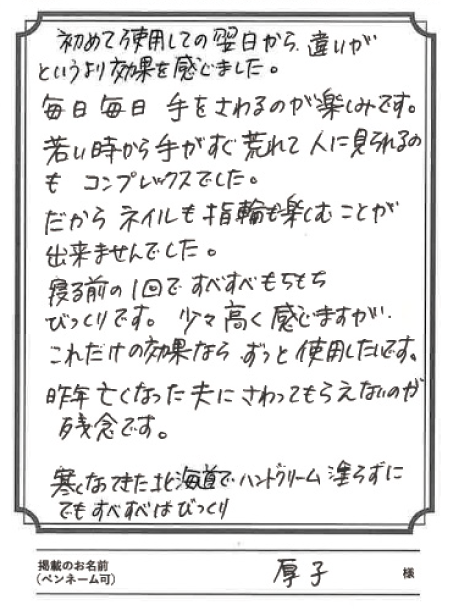 初めて使用しての翌日から、違いが
というより効果を感じました。
毎日毎日 手をさわるのが楽しみです。
若い時から手がすぐ荒れて人に見られるの
も コンプレックスでした。
だから ネイルも指輪も楽しむことが
出来ませんでした。
寝る前の1回で すべすべもちもち
びっくりです。 少々高く感じますが、
これだけの効果なら ずっと使用したいです。
昨年亡くなった夫に さわってもらえないのが
残念です。
寒くなってきた北海道でハンドクリーム塗らずに
でもすべすべはびっくり
掲載のお名前
(ペンネーム可) 厚子 様